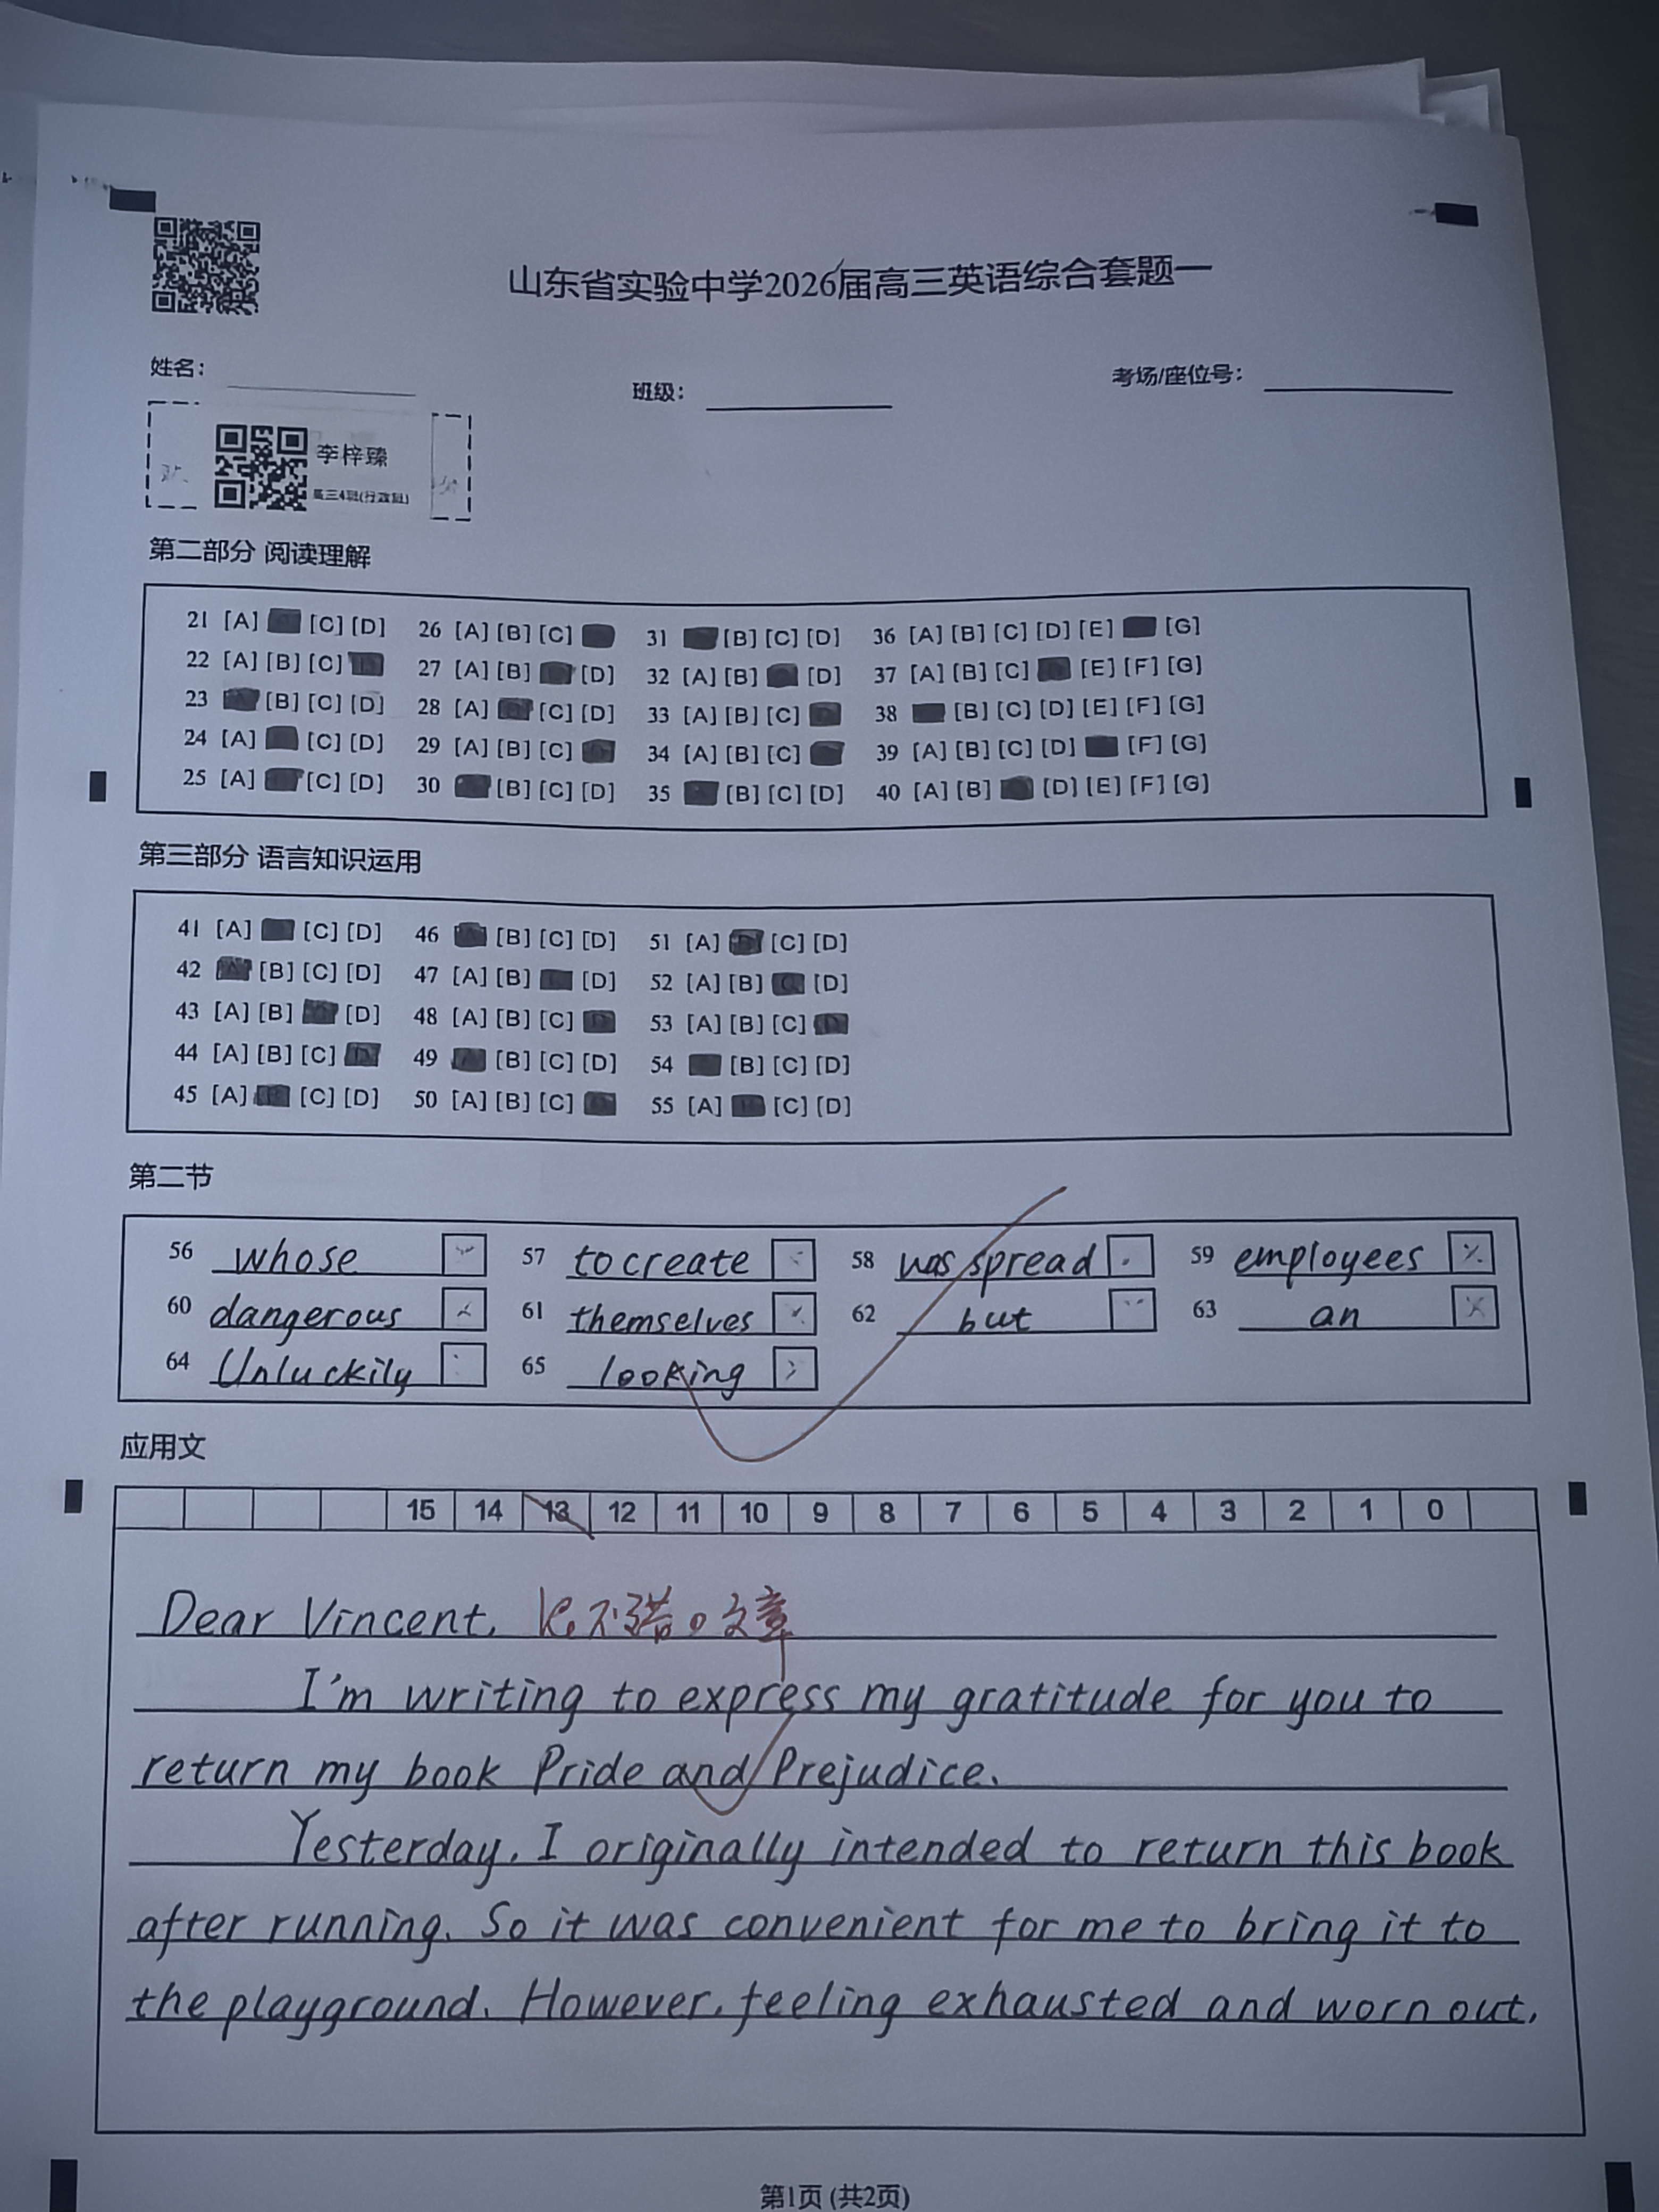 山东省实验中学2026届高三英语综合套题一
姓名:
班级:
考场/座位号:
李梓臻
高三4班(行政班)
第二部分 阅读理解
21 [A] [C] [D] 26 [A] [B] [C] 31 [B] [C] [D] 36 [A] [B] [C] [D] [E] [G]
22 [A] [B] [C] 27 [A] [B] [D] 32 [A] [B] [D] 37 [A] [B] [C] [E] [F] [G]
23 [B] [C] [D] 28 [A] [C] [D] 33 [A] [B] [C] 38 [B] [C] [D] [E] [F] [G]
24 [A] [C] [D] 29 [A] [B] [C] 34 [A] [B] [C] 39 [A] [B] [C] [D] [F] [G]
25 [A] [C] [D] 30 [B] [C] [D] 35 [B] [C] [D] 40 [A] [B] [D] [E] [F] [G]
第三部分 语言知识运用
41 [A] [C] [D] 46 [B] [C] [D] 51 [A] [C] [D]
42 [B] [C] [D] 47 [A] [B] [D] 52 [A] [B] [D]
43 [A] [B] [D] 48 [A] [B] [C] 53 [A] [B] [C]
44 [A] [B] [C] 49 [B] [C] [D] 54 [B] [C] [D]
45 [A] [C] [D] 50 [A] [B] [C] 55 [A] [C] [D]
第二节
56 whose 57 to create 58 was spread 59 employees
60 dangerous 61 themselves 62 but 63 an
64 Unluckily 65 looking
应用文
15 14 13 12 11 10 9 8 7 6 5 4 3 2 1 0
Dear Vincent, 很不错的文章
I'm writing to express my gratitude for you to
return my book Pride and Prejudice.
Yesterday, I originally intended to return this book
after running. So it was convenient for me to bring it to
the playground. However, feeling exhausted and worn out,
第1页 (共2页)